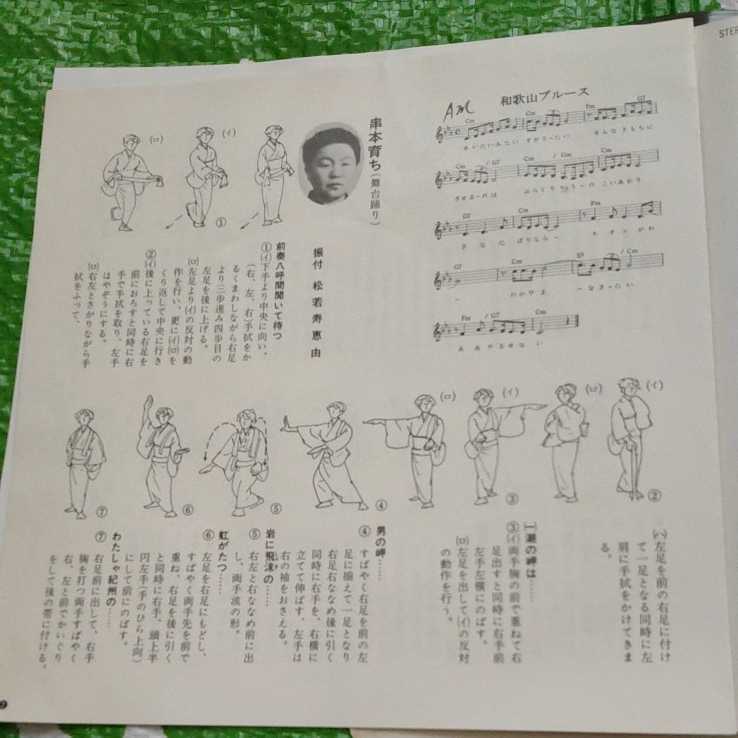 STEP
和歌山ブルース
Cm Cm Fm G7
さいたいみたい
Cm / G7 Cm Cm Cm
Fm
G7 Cm
Fm /G7 Cm
串本育ち(舞台踊り)
振付 松若寿恵由
前奏八呼間聞いて待つ
①(イ)下手より中央に向い、
(右、左、右)手拭をか
るくまわしながら右足
より三歩進み四歩目の
左足を後に上げる。
(ロ)左足より(イ)の反対の動
作を行い、更に(イ)(ロ)を
くり返して中央に行き
②(イ)後に上っている右足を
前におろすと同時に右
手で手拭を取り、左手
はやぞうにする。
(ロ)右左とさがりながら手
拭をふって、
(ロ)
(イ)
①
(ロ)
(イ)
(ロ)
(イ)
⑦
⑥
⑤
④
③
②
(ハ)左足を前の右足に付け
て一足となる同時に左
肩に手拭をかけてきま
る。
一潮の岬は……
③(イ)両手胸の前で重ねて右
足出すと同時に右手前
左手左横にのばす。
(ロ)左足を出して(イ)の反対
の動作を行う。
男の岬……
④すばやく右足を前の左
足に揃えて一足となり
右足右ななめ後に引く
同時に右手を、右横に
立てて伸ばす、左手は
右の袖をおさえる。
岩に飛沫の……
⑤右左と右ななめ前に出
し、両手波の形。
虹がたつ……
⑥左足を右足にもどし、
すばやく両手先を前で
重ね、右足を後に引く
と同時に右手、頭上半
円左手(手のひら上向)
にして前にのばす。
わたしゃ紀州の……
⑦右足前に出して、右手
胸を打つ両手すばやく
右、左と前でかいぐり
をして後の帯に付ける。